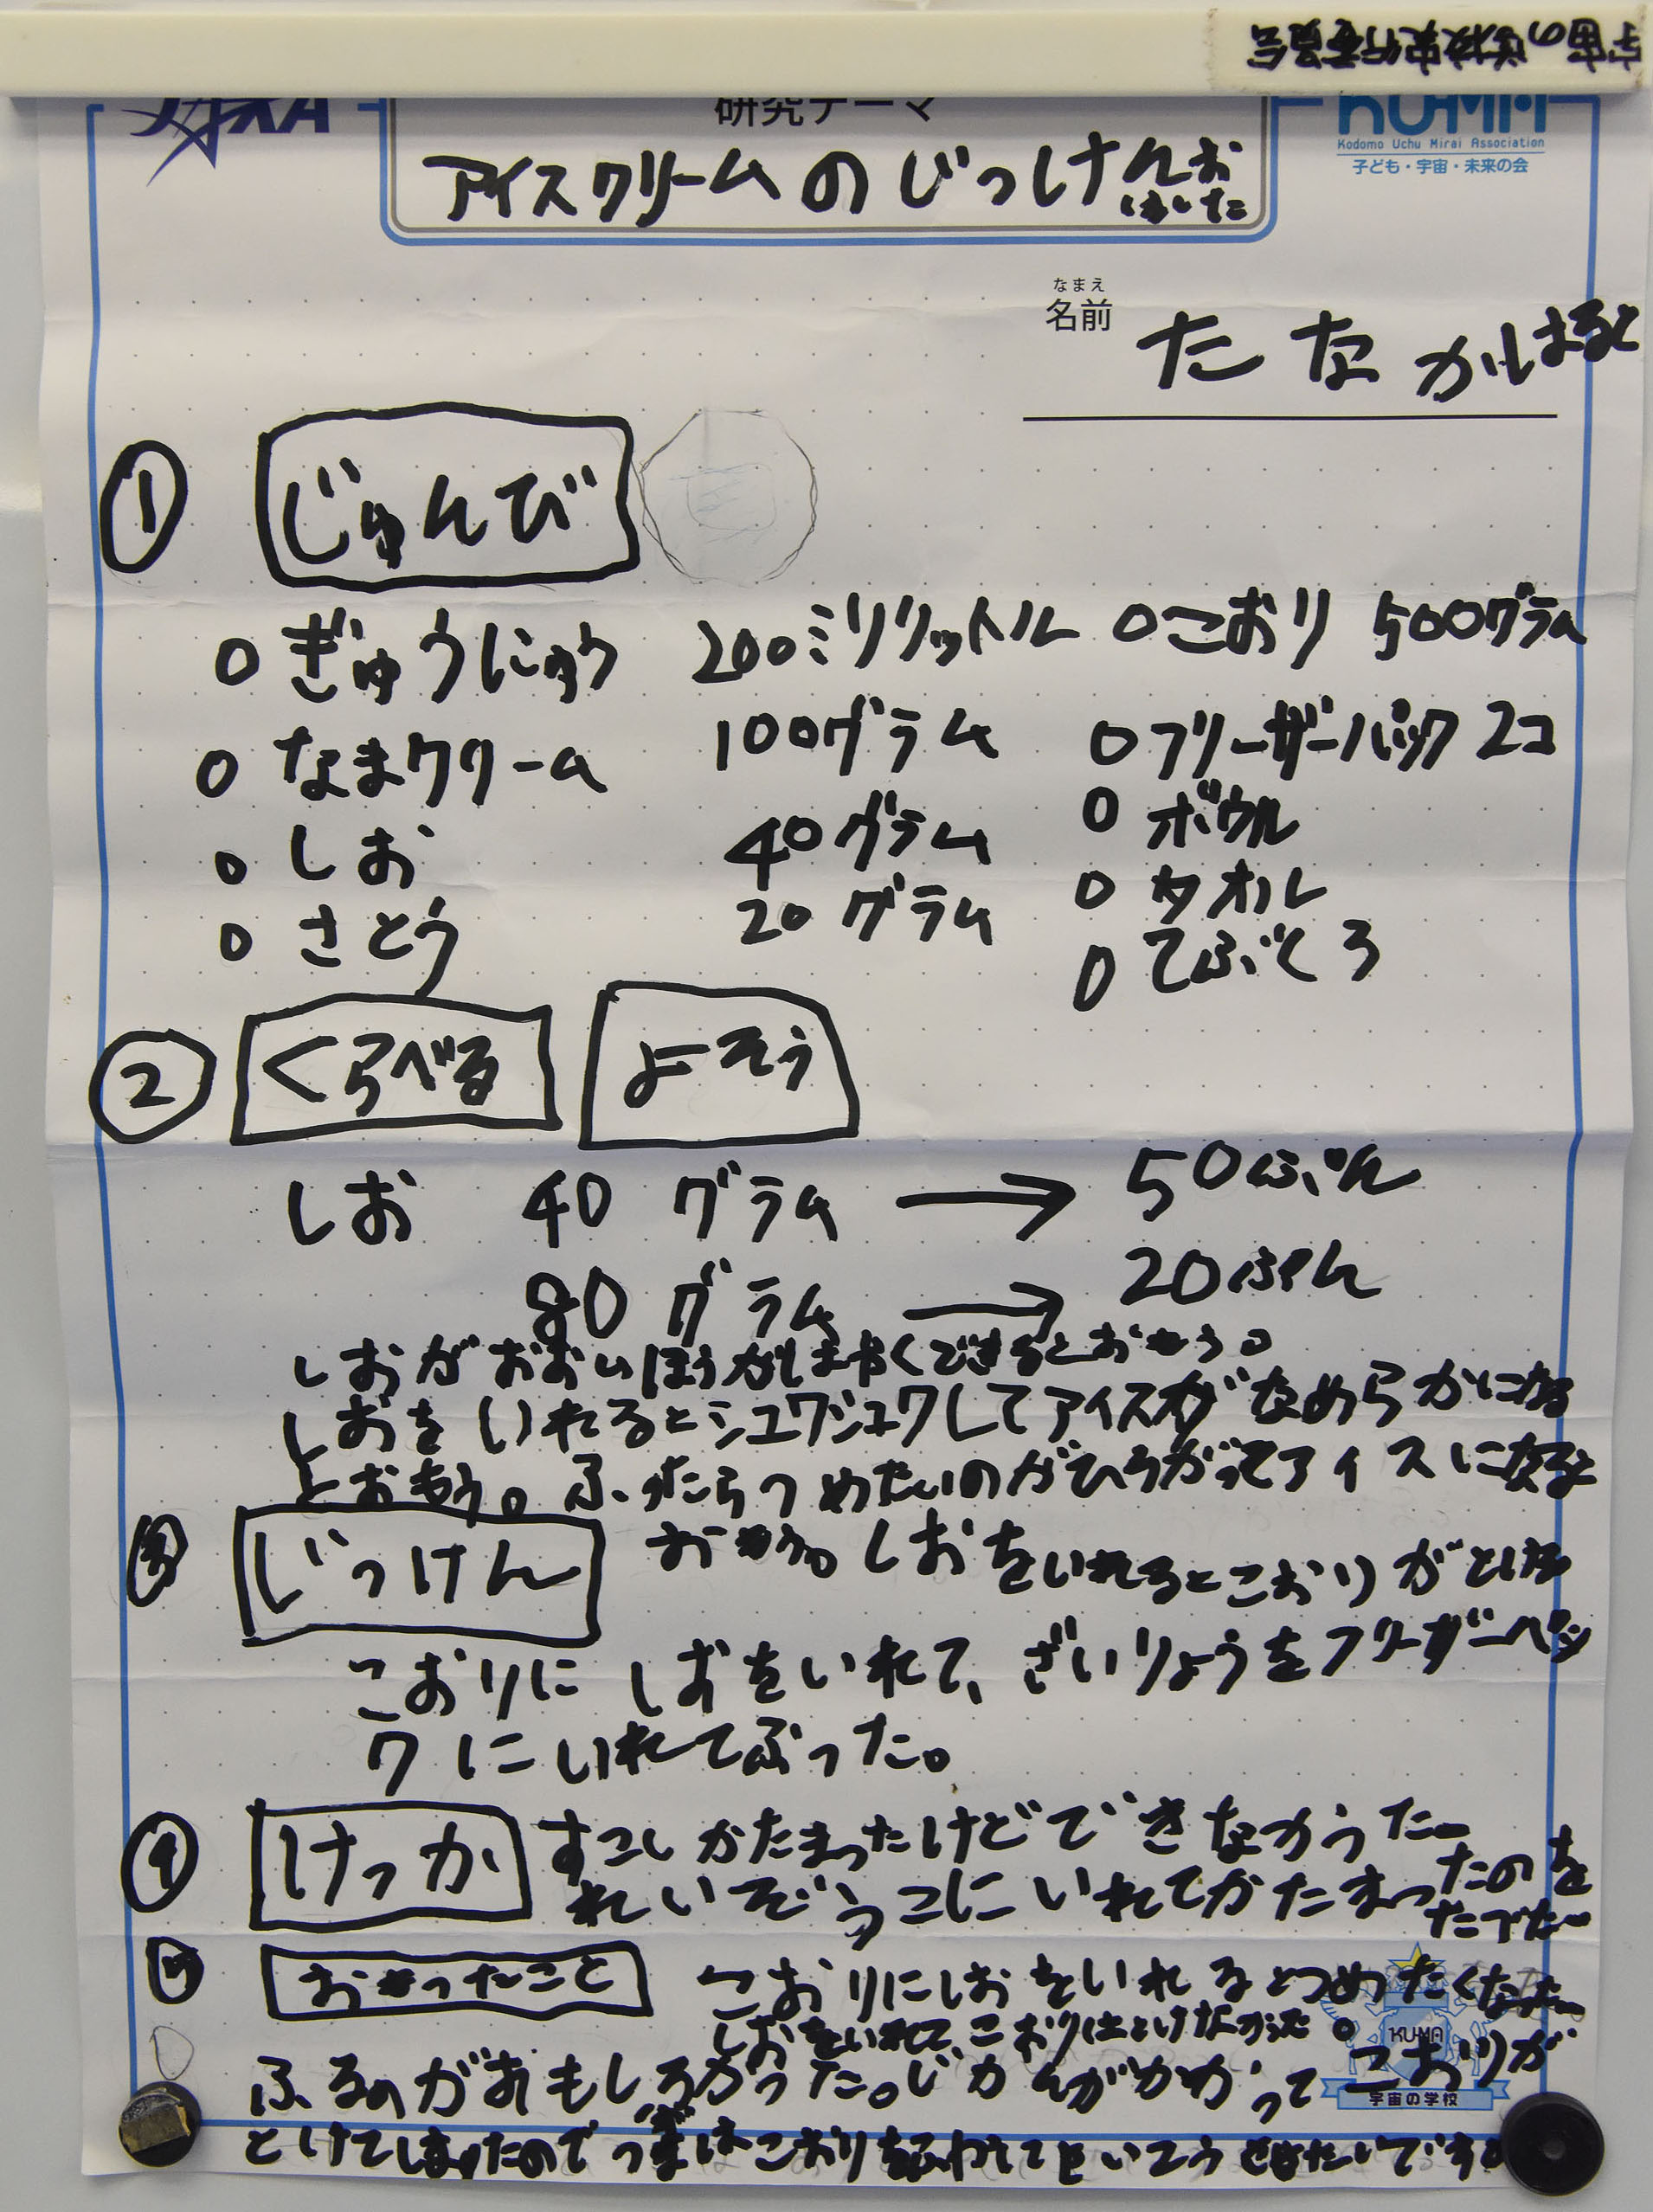 宇宙の学校実行委員会
研究テーマ
KUMA
Kodomo Uchu Mirai Association
子ども・宇宙・未来の会
アイスクリームのじっけんお
なまえ
名前
たなか はると
① じゅんび
0 ぎゅうにゅう 200ミリリットル 0 こおり 500グラム
0 なまクリーム 100グラム 0 フリーザーパック 2コ
0 しお 40グラム 0 ボウル
0 さとう 20グラム 0 タオル
0 てぶくろ
② くらべる よそう
しお 40グラム → 50ぷん
80グラム → 20ぷん
しおがおおいほうがはやくできるとおもう。
しおをいれるとシュワシュワしてアイスがなめらかになる
とおもう。ふったらつめたいのがひろがってアイスになると
③ じっけん おもう。しおをいれるとこおりがとける
こおりにしおをいれて、ざいりょうをフリーザーパッ
クにいれてぶった。
④ けっか すこしかたまったけどできなかった
れいぞうこにいれてかたまったのを
たべた
⑤ おもったこと こおりにしおをいれるとつめたくなった
しおをいれて、こおりはとけなかった。
ふるのがおもしろかった。じかんがかかって こおりが
とけてしまったのでつぎはこおりを
KU-MA
宇宙の学校